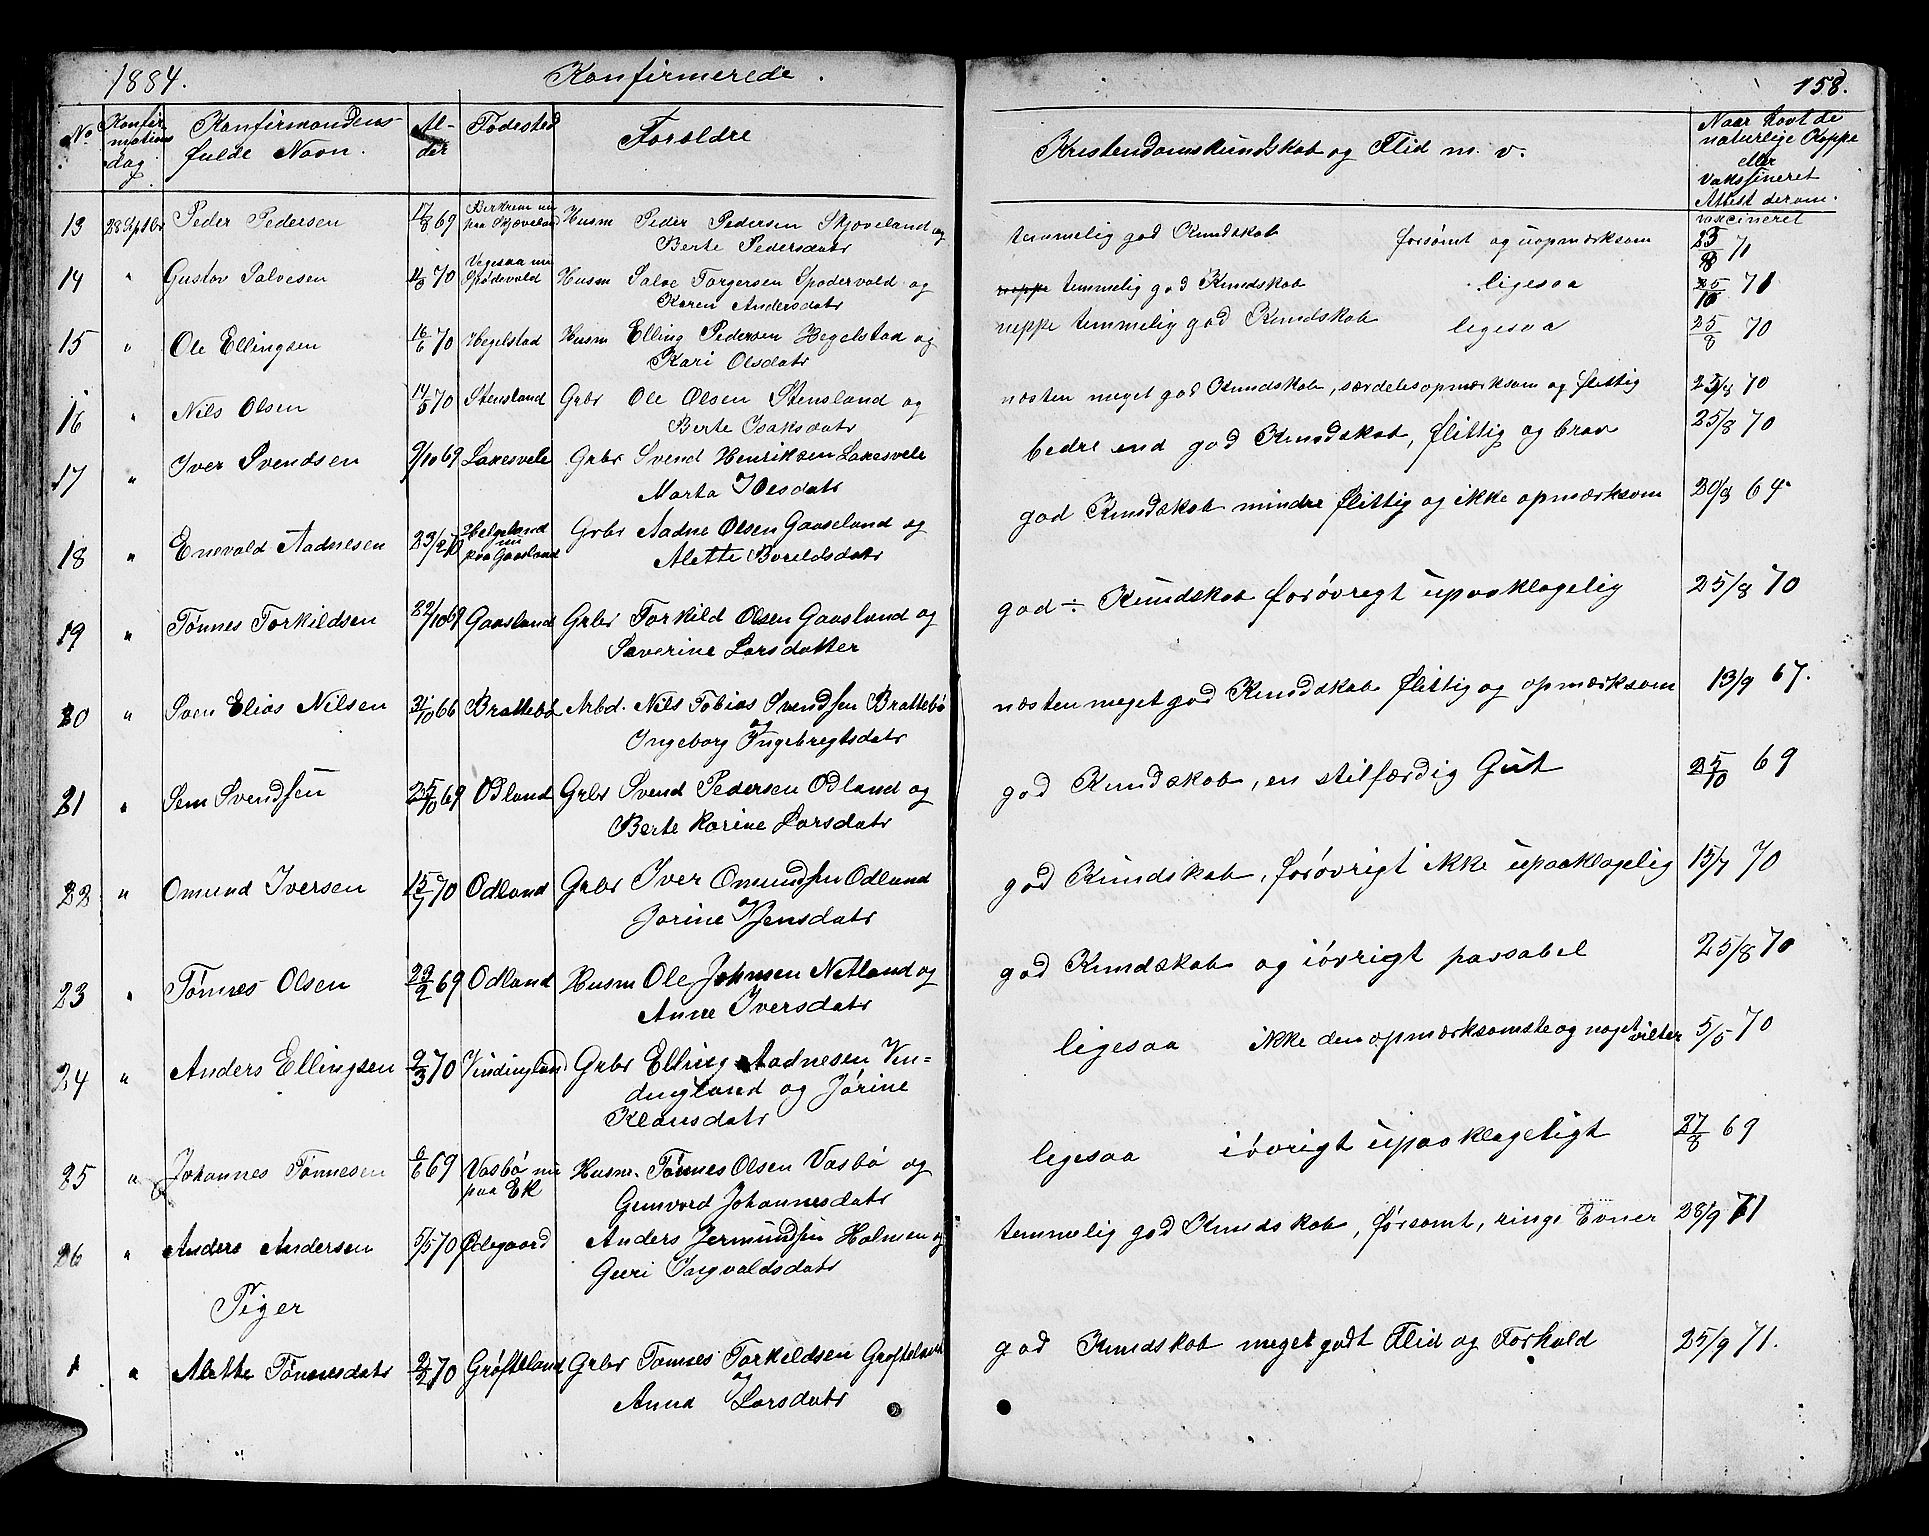 1884. Konfirmerede. 158.
No Konfirmations dag. Konfirmandens fulde Navn. Alder Fødested Forældre Kristendomskundskab og Flid m. v. Naar havt de naturlige Kopper eller Vaksineret Attest derom.
vaccineret
13 28 Sptbr Peder Pedersen 17/8 69 Berkrem nu paa Skjæveland Husm Peder Pedersen Skjæveland og temmelig god Kundskab forsømt og uopmærksom 25/8 71
Berte Pedersdatr
14 " Gustav Salvesen 70 Vegesaa nu Spødevold Husm Salve Torgersen Spødervold og temmelig god Kundskab ligesaa 25/10 71
Karen Andersdatr
15 " Ole Ellingsen 16/6 70 Hegelstad Husm Elling Pedersen Hegelstad og neppe temmelig god Kundskab ligesaa 25/8 70
Kari Olsdatr
16 " Nils Olsen 70 Stensland Grbr Ole Olsen Stensland og næsten meget god Kundskab, særdeles opmærksom og flittig 25/8 70
Berte Isaksdatr
17 " Iver Svendsen 9/10 69 Laksvele Grbr Svend Henriksen Laksvele bedre end god Kundskab, flittig og brav 25/8 70
Marta Olesdatr
18 " Enevald Aadnesen 23/2 70 Helgeland nu paa Gaasland Grbr Aadne Olsen Gaaseland og god Kundskab mindre flittig og ikke opmærksom
Alette Boreldsdatr
19 " Tønnes Torkildsen 22/10 69 Gaasland Grbr Torkild Olsen Gaasland og god ÷ Kundskab forøvrigt upaaklagelig 25/8 70
Saverine Larsdatter
20 " Sven Elias Nilsen 31/10 66 Brattebø Arbd. Nils Tobias Svendsen Brattebø næsten meget god Kundskab flittig og opmærksom 13/9 67.
og
Ingeborg Ingebregtsdatr
21 " Sem Svendsen 25/10 69 Odland Grbr Svend Pedersen Odland og god Kundskab, en stilfærdig Gut 25/10 69
Berte Karine Larsdatr
22 " Omund Iversen 15/7 70 Odland Grbr Iver Omundsen Odland god Kundskab, forøvrigt ikke upaaklagelig 15/7 70
og
Jorine Jensdatr
23 " Tønnes Olsen 22/2 69 Odland Husm Ole Johnsen Netland og god Kundskab og iøvrigt passabel 25/8 70
Anne Iversdatr
24 " Anders Ellingsen 9/3 70 Vindingland Grbr Elling Aadnesen Vin- ligesaa ikke den opmærksomste og noget vilter 5/5 70
dingland og Jørine
Klausdatr
25 " Johannes Tønnesen 9/6 69 Vasbø nu paa Ek Husm. Tønnes Olsen Vasbø og ligesaa iøvrigt upaaklageligt 27/8 69
Gunvord Johannesdatr
26 " Anders Andersen 5/5 70 Ødegaard Anders Jermundsen Holmen og temmelig god Kundskab, forsømt, ringe Evner 28/9 71
Guri Ingvaldsdatr
Piger
1 " Alette Tønnesdatr 2/2 70 Grøfteland Grbr Tønnes Torkildsen Grøfteland god Kundskab meget godt Flid og Forhold 25/9 71.
og
Anna Larsdatr